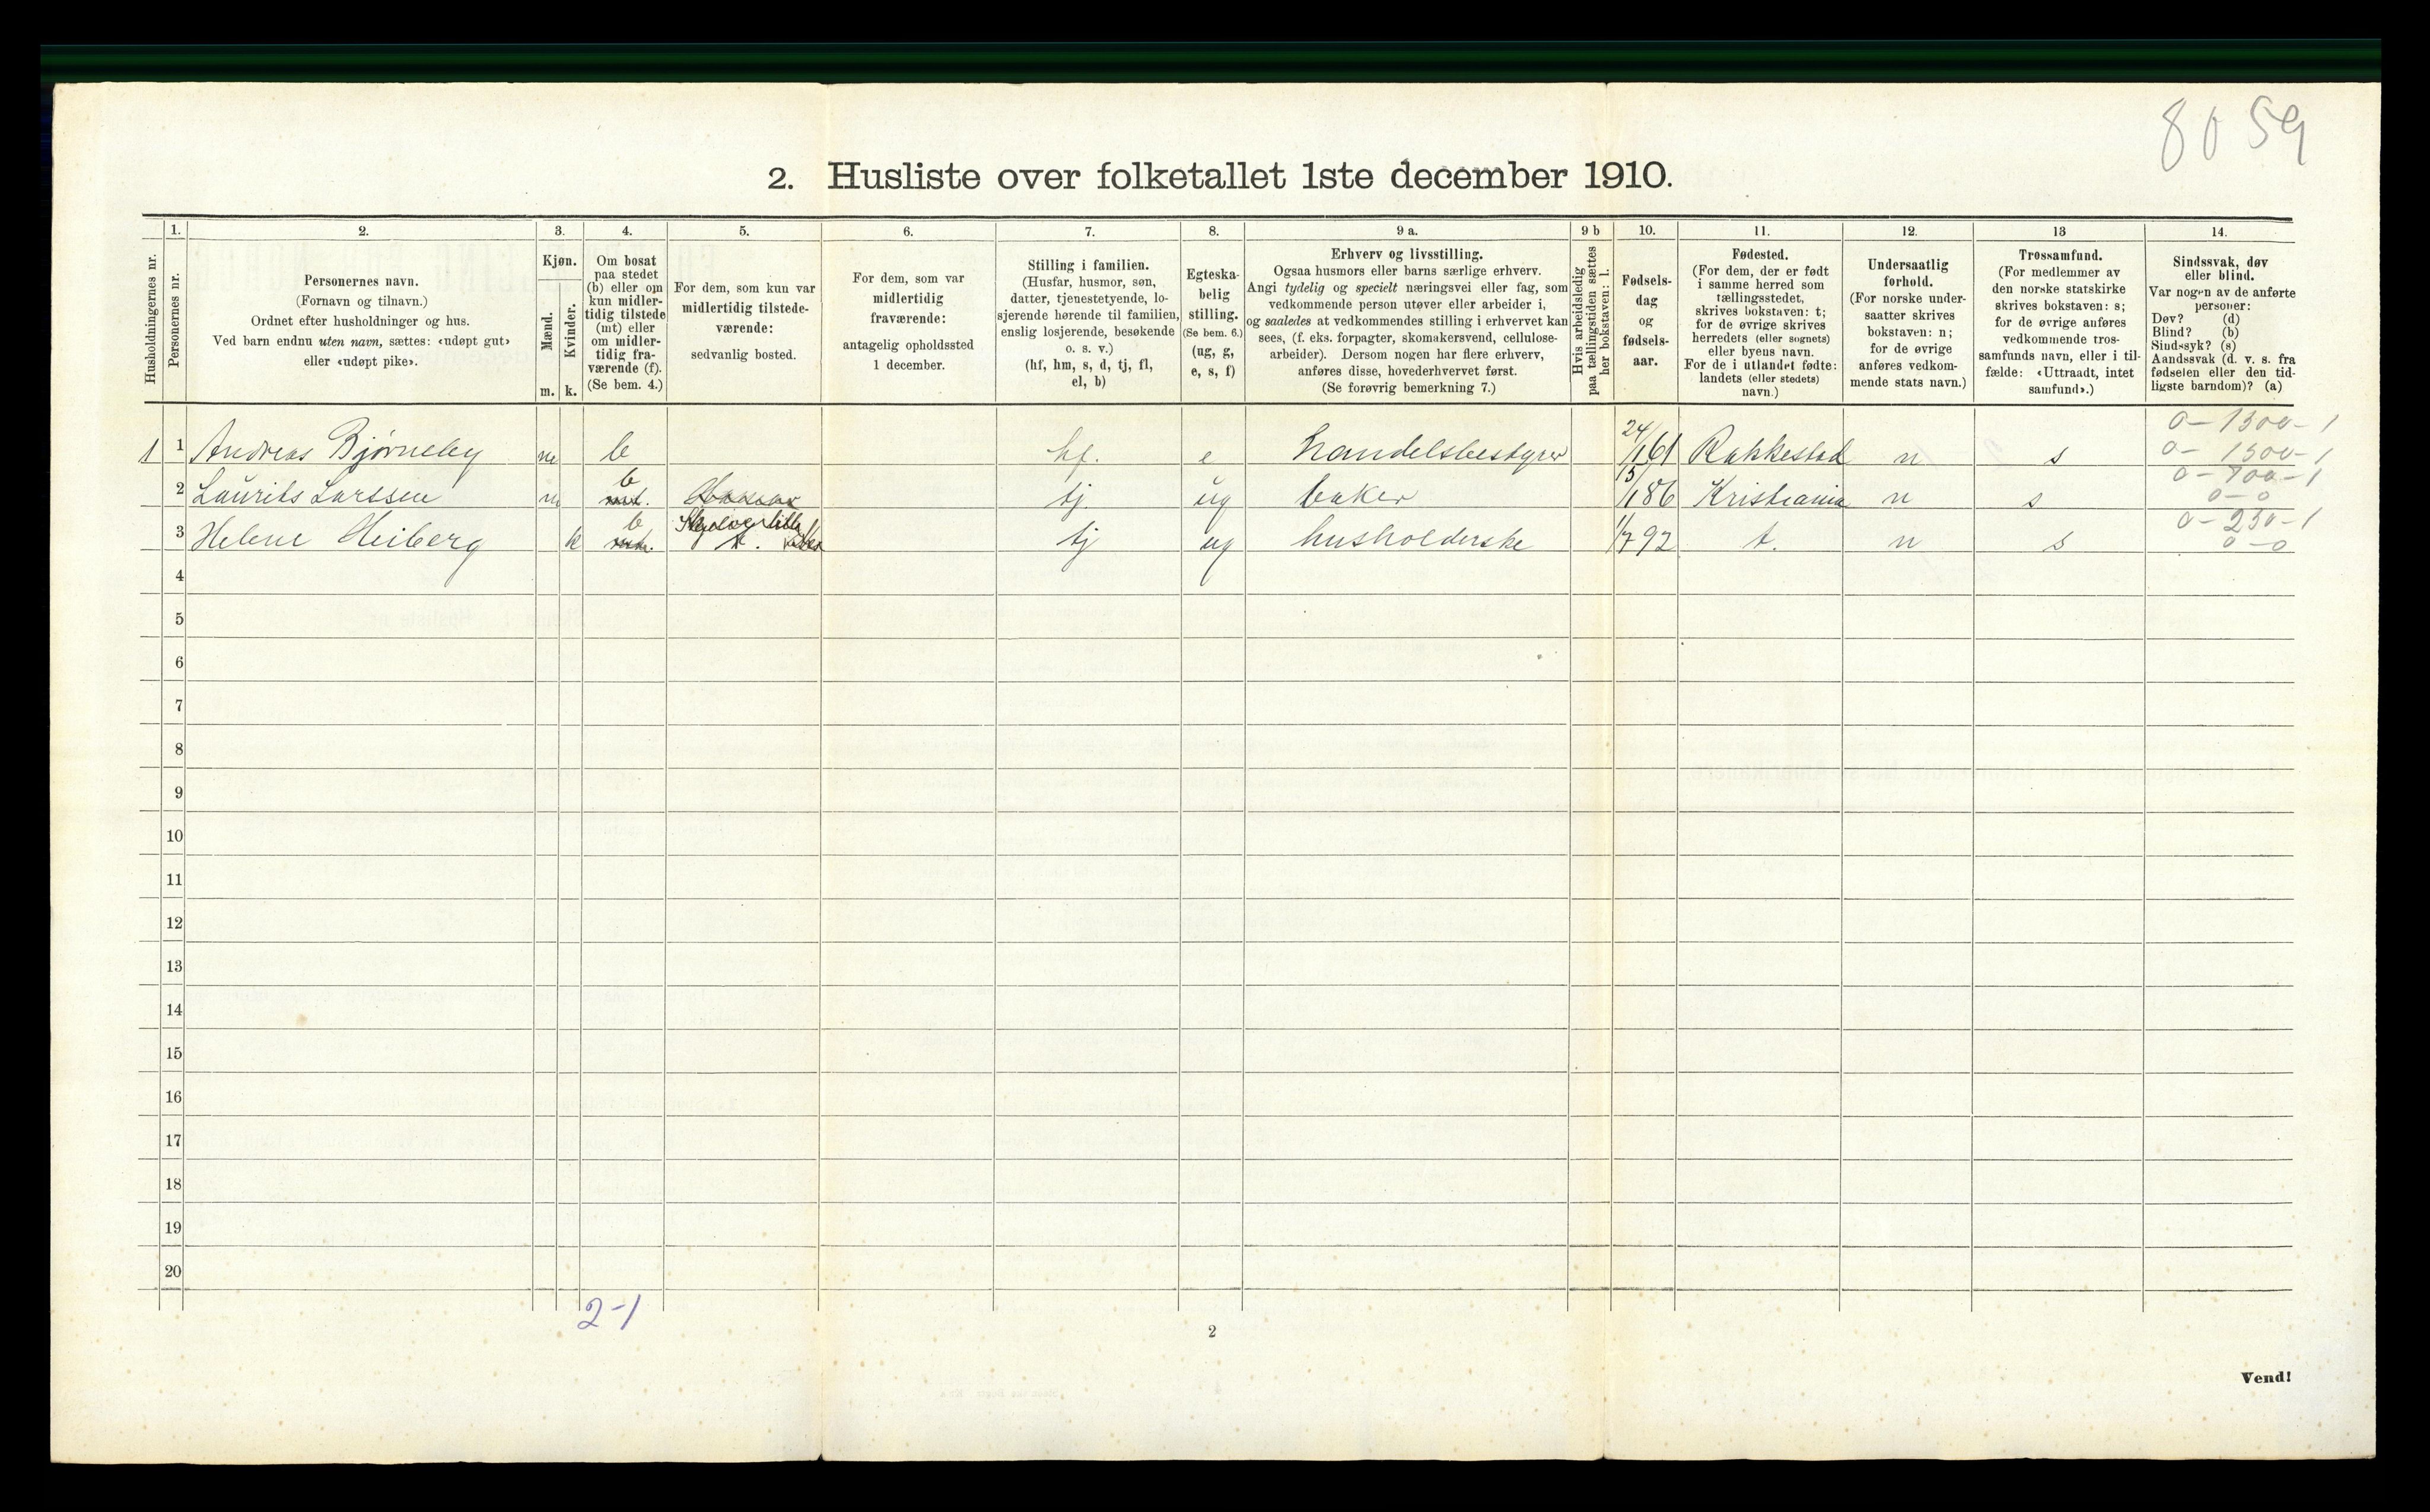 8059
2. Husliste over folketallet 1ste december 1910.
Husholdningernes nr.
1.
Personernes nr.
2.
Personernes navn.
(Fornavn og tilnavn.)
Ordnet efter husholdninger og hus.
Ved barn endnu uten navn, sættes: «udøpt gut»
eller «udøpt pike».
3.
Kjøn.
Mænd.
Kvinder.
m. k.
4.
Om bosat
paa stedet
(b) eller om
kun midler-
tidig tilstede
(mt) eller
om midler-
tidig fra-
værende (f).
(Se bem. 4.)
5.
For dem, som kun var
midlertidig tilstede-
værende:
sedvanlig bosted.
6.
For dem, som var
midlertidig
fraværende:
antagelig opholdssted
1 december.
7.
Stilling i familien.
(Husfar, husmor, søn,
datter, tjenestetyende, lo-
sjerende hørende til familien,
enslig losjerende, besøkende
o. s. v.)
(hf, hm, s, d, tj, fl,
el, b)
8.
Egteska-
belig
stilling.
(Se bem. 6.)
(ug, g,
e, s, f)
9 a.
Erhverv og livsstilling.
Ogsaa husmors eller barns særlige erhverv.
Angi tydelig og specielt næringsvei eller fag, som
vedkommende person utøver eller arbeider i,
og saaledes at vedkommendes stilling i erhvervet kan
sees, (f. eks. forpagter, skomakersvend, cellulose-
arbeider). Dersom nogen har flere erhverv,
anføres disse, hovederhvervet først.
(Se forøvrig bemerkning 7.)
9 b
Hvis arbeidsledig
paa tællingstiden sættes
her bokstaven: l.
10.
Fødsels-
dag
og
fødsels-
aar.
11.
Fødested.
(For dem, der er født
i samme herred som
tællingsstedet,
skrives bokstaven: t;
for de øvrige skrives
herredets (eller sognets)
eller byens navn.
For de i utlandet fødte:
landets (eller stedets)
navn.)
12.
Undersaatlig
forhold.
(For norske under-
saatter skrives
bokstaven: n;
for de øvrige
anføres vedkom-
mende stats navn.)
13
Trossamfund.
(For medlemmer av
den norske statskirke
skrives bokstaven: s;
for de øvrige anføres
vedkommende tros-
samfunds navn, eller i til-
fælde: «Uttraadt, intet
samfund».)
14.
Sindssvak, døv
eller blind.
Var nogen av de anførte
personer:
Døv? (d)
Blind? (b)
Sindssyk? (s)
Aandssvak (d. v. s. fra
fødselen eller den tid-
ligste barndom)? (a)
0-1300-1
1 1 Andreas Bjørneby m b hf. e handelsbestyrer 24/1 61 Rakkestad n s 0-1500-1
0-700-1
2 Laurits Larssen m b mt. tj. ug baker 15/1 86 Kristiania n s 0-0
0-230-1
3 Helene Heiberg k b mt. t. tj ug husholderske 1/7 92 t. n s 0-0
4
5
6
7
8
9
10
11
12
13
14
15
16
17
18
19
20
2-1
2
Vend!